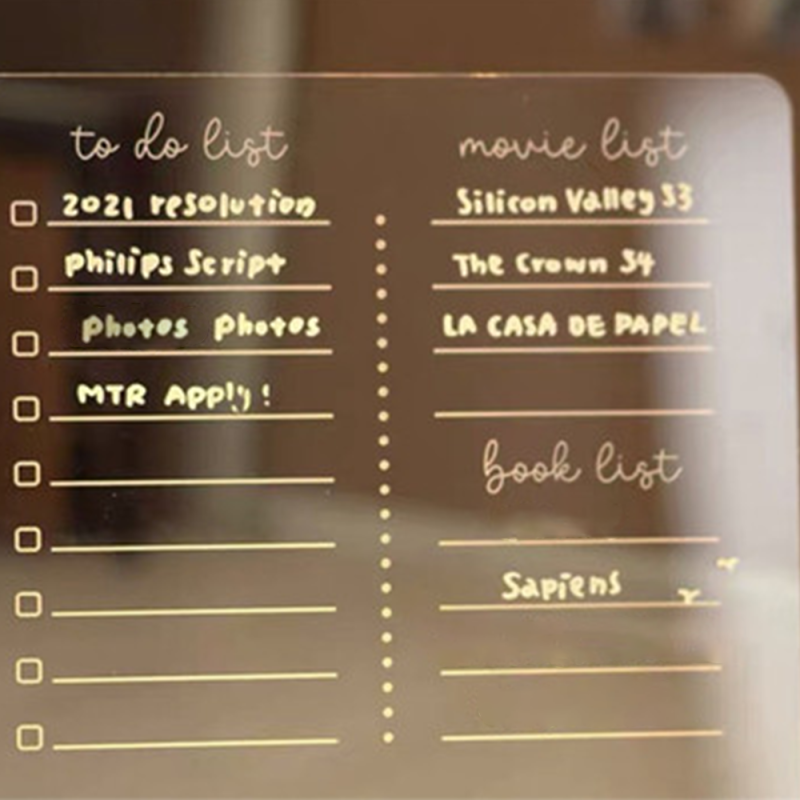 to do list
2021 resolution
Philips Script
Photos Photos
MTR Apply!
movie list
Silicon Valley S3
The Crown S4
LA CASA DE PAPEL
book list
Sapiens